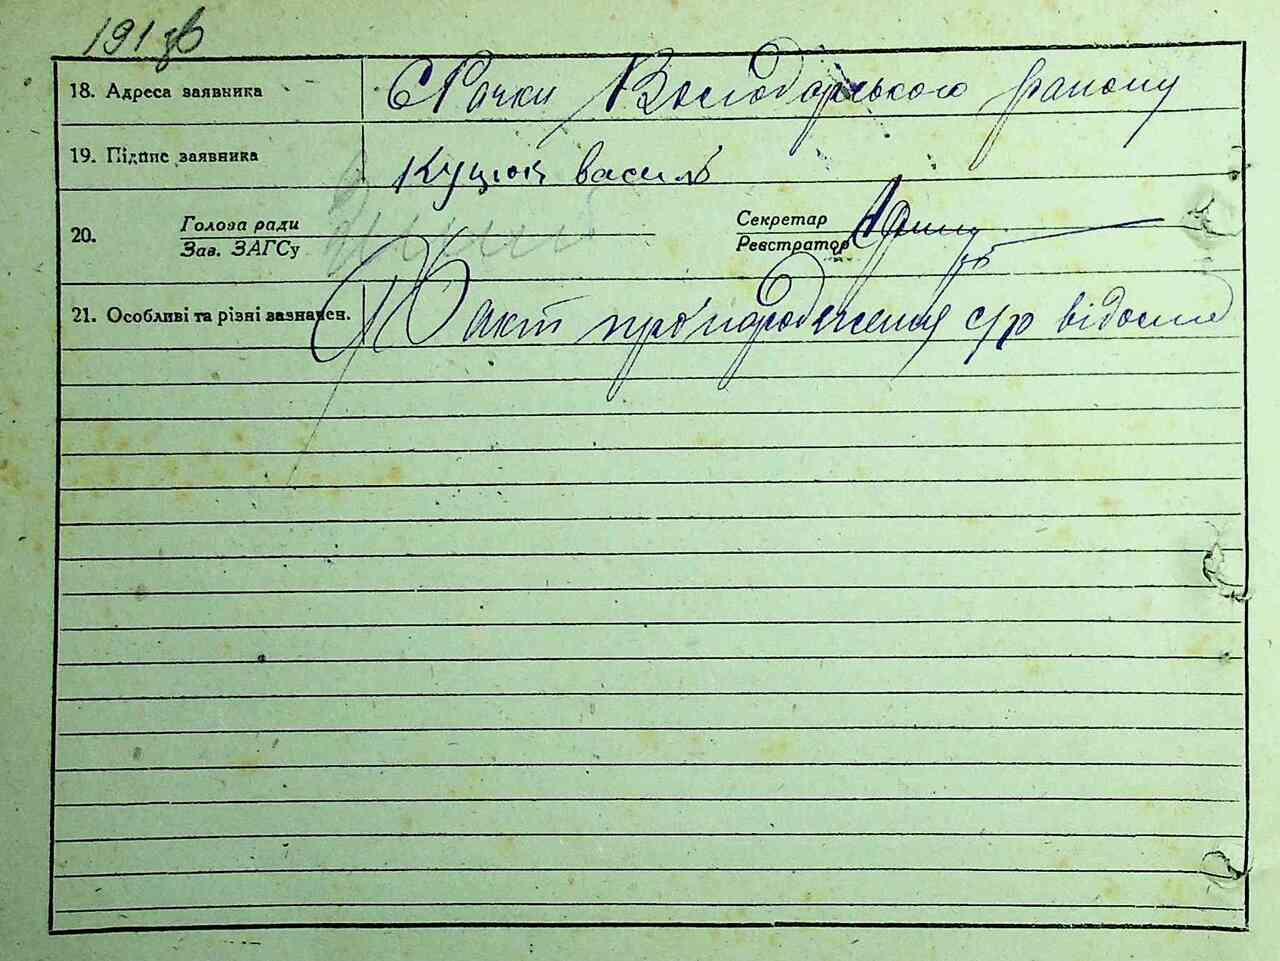 191 зв
18. Адреса заявника С Рачки Володарського району
19. Підпис заявника Куцюк василь
20. Голова ради
Зав. ЗАГСу
Секретар
Реєстратор
21. Особливі та різні зазначен. Факт про народження с/р відомий